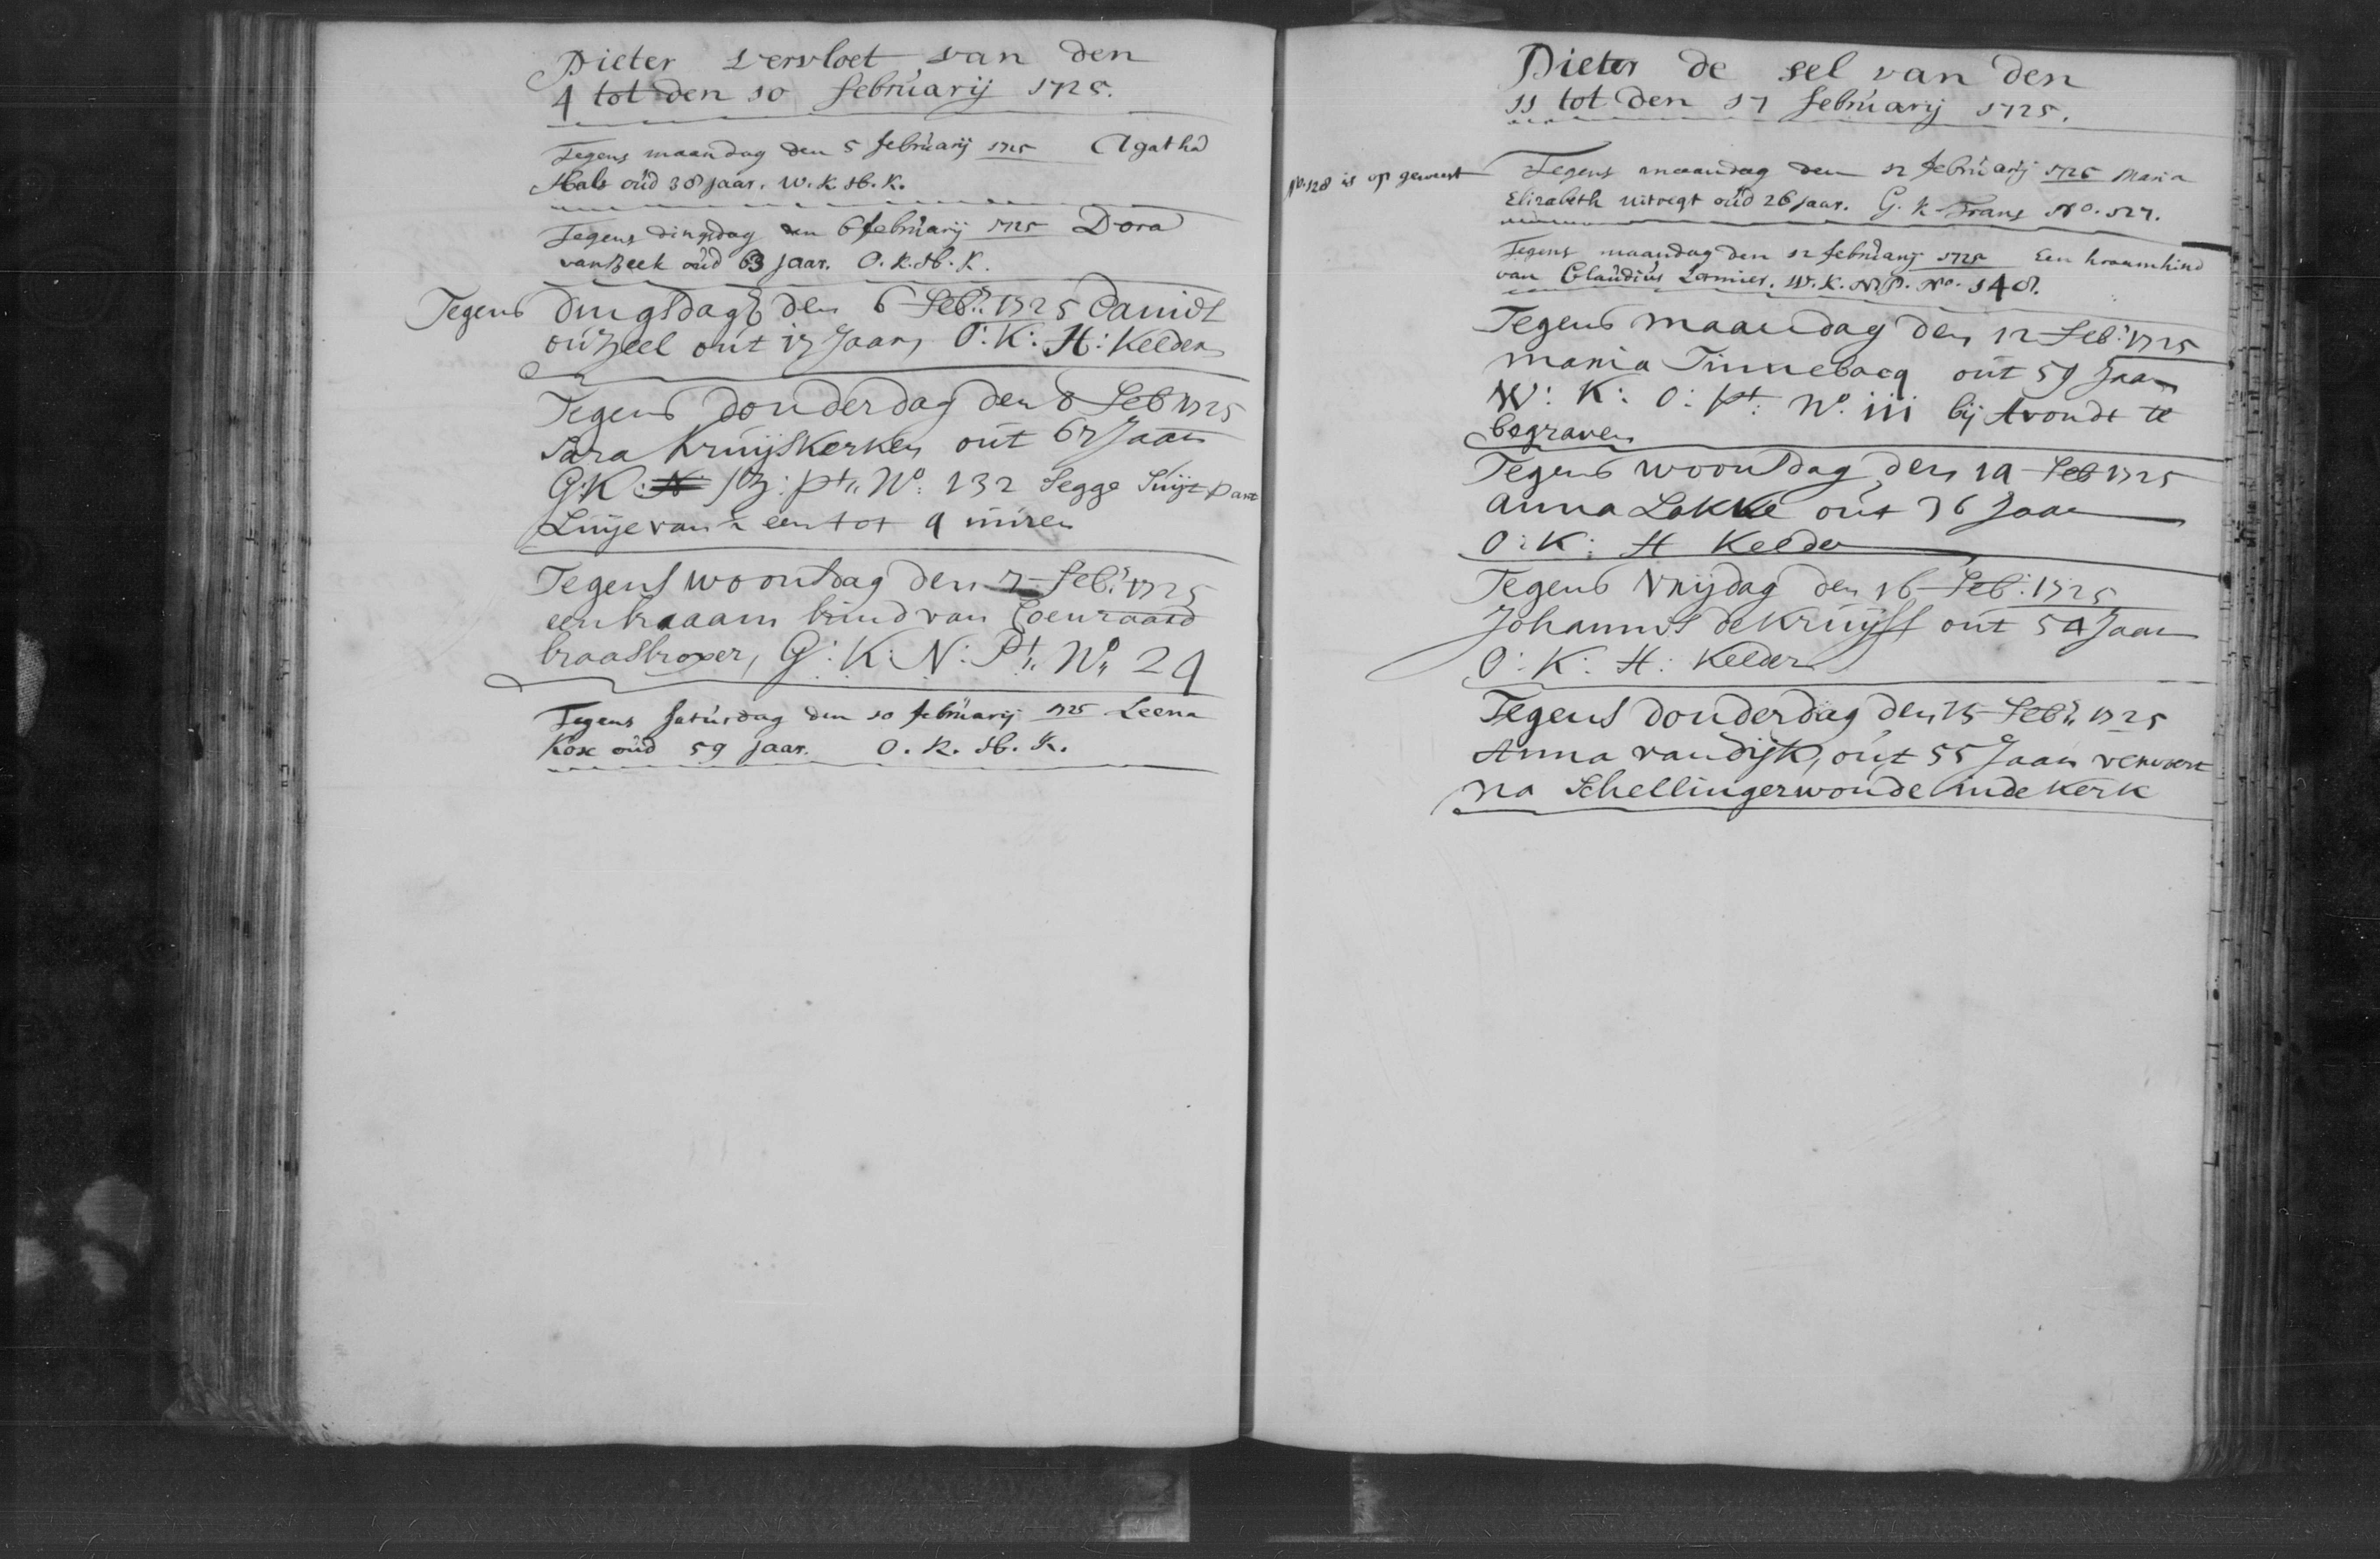 Pieter vervloet van den
4 tot den 10 februarij 1725.
Tegens maandag den 5 februarij 1725 Agatha
Hals oud 38 jaar. W. K. H. K.
Tegens dingsdag den 6 februarij 1725 Dora
van Beek oud 63 jaar. O. K. H. K.
Tegens dingsdag den 6 Feb: 1725
out 17 Jaar, O: K: H: Kelder
Tegens donderdag den 8 Feb 1725
Sara Kruijskerken out 67 Jaar
G: K: Z: Pt. No: 132 Segge Suijt Pant
Linije van een tot 4 uuren
Tegens woonsdag den 7 Feb: 1725
een kraam kind van Coenraaed
G: K: N: Pt. No 24
Tegens saturdag den 10 februarij 1725 Leena
Kox oud 59 jaar. O. K. H. K.
Pieter de sel van den
11 tot den 17 februarij 1725.
No. 128 is op geweest
Tegens maandag den 12 februarij 1725 Maria
Elizabeth uitregt oud 26 jaar. G. K. Frans No. 127.
Tegens maandag den 12 februarij 1725 Een kraamkind
van Claudius Lormier. W. K. N. P. No. 148.
Tegens maandag den 12 Feb: 1725
maria Tinnebacq out 59 Jaar
W: K: O: Pt: No. 111 bij Avondt te
begraven
Tegens woonsdag den 14 Feb 1725
Anna Lakke out 36 Jaar
O: K: H Kelder
Tegens Vrijdag den 16 Feb: 1725
Johannis de Kruijff out 54 Jaar
O: K: H: Kelder
Tegens donderdag den 15 Feb: 1725
Anna van dijk, out 55 Jaar vervoert
na Schellingerwoude in de Kerk